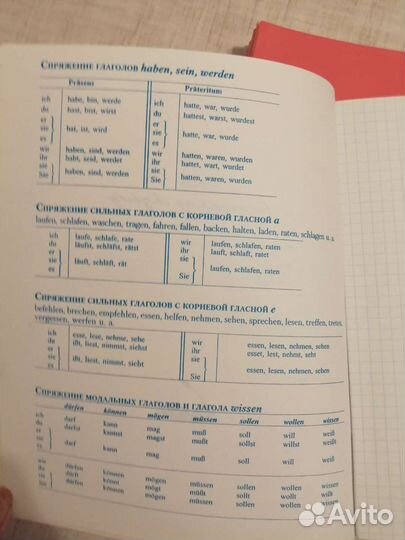 Спряжение глаголов haben, sein, werden
Präsens Präteritum
ich habe, bin, werde ich hatte, war, wurde
du hast, bist, wirst du hattest, warst, wurdest
er er
sie hat, ist, wird sie hatte, war, wurde
es es
wir haben, sind, werden wir hatten, waren, wurden
ihr habt, seid, werdet ihr hattet, wart, wurdet
sie haben, sind, werden sie hatten, waren, wurden
Sie Sie
Спряжение сильных глаголов с корневой гласной a
laufen, schlafen, waschen, tragen, fahren, fallen, backen, halten, laden, raten, schlagen u. a.
ich laufe, schlafe, rate wir laufen, schlafen, raten
du läufst, schläfst, rätst ihr lauft, schlaft, ratet
er sie
sie läuft, schläft, rät laufen, schlafen, raten
es Sie
Спряжение сильных глаголов с корневой гласной e
befehlen, brechen, empfehlen, essen, helfen, nehmen, sehen, sprechen, lesen, treffen, treten,
vergessen, werfen u. a.
ich esse, lese, nehme, sehe wir essen, lesen, nehmen, sehen
du ißt, liest, nimmst, siehst ihr esset, lest, nehmt, seht
er sie
sie ißt, liest, nimmt, sieht essen, lesen, nehmen, sehen
es Sie
Спряжение модальных глаголов и глагола wissen
dürfen können mögen müssen sollen wollen wissen
ich darf kann mag muß soll will weiß
du darfst kannst magst mußt sollst willst weißt
er
sie darf kann mag muß soll will weiß
es
wir dürfen können mögen müssen sollen wollen wissen
ihr dürft könnt mögt müßt sollt wollt wißt
sie dürfen können mögen müssen sollen wollen wissen
Sie
Avito